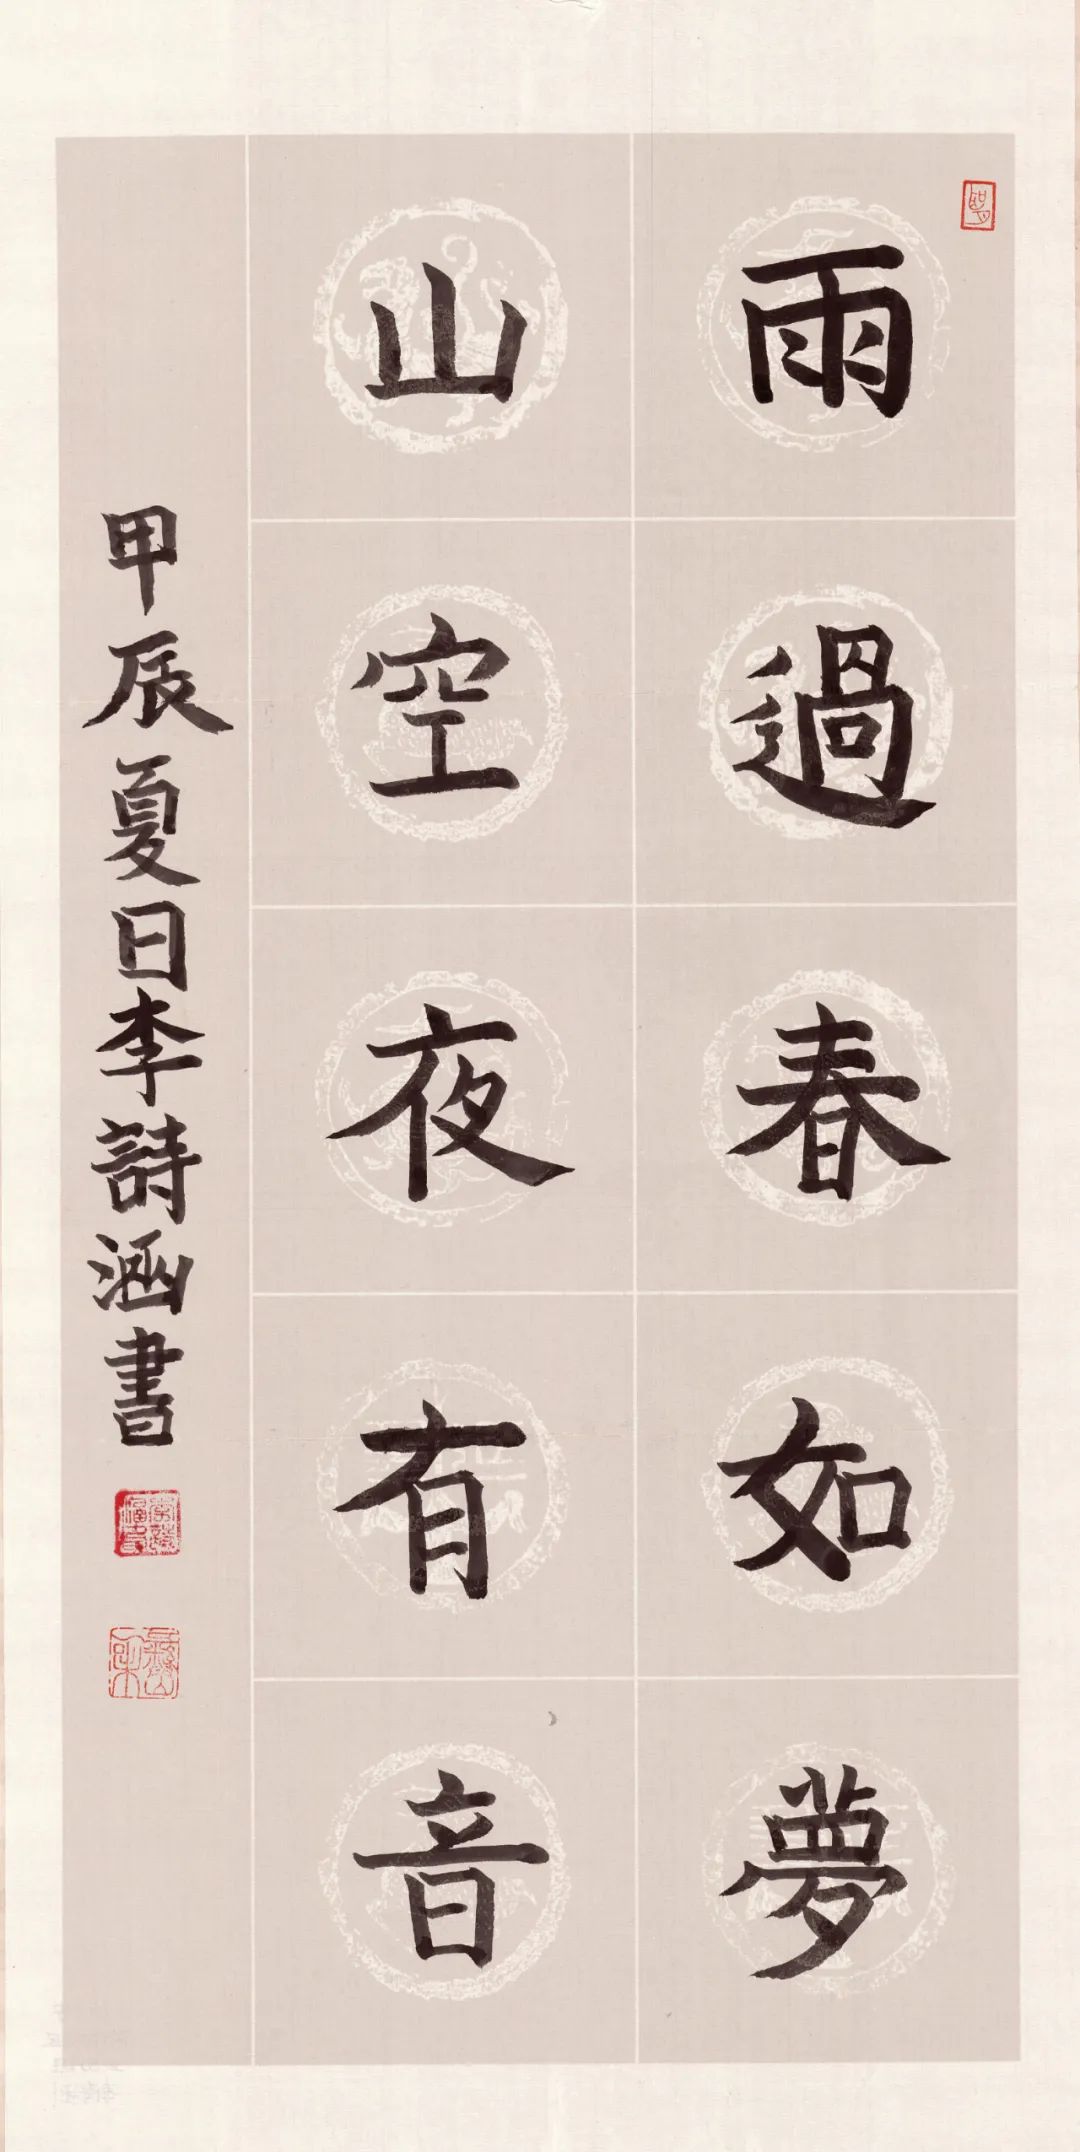 雨過春如夢
山空夜有音
甲辰夏日李詩涵書